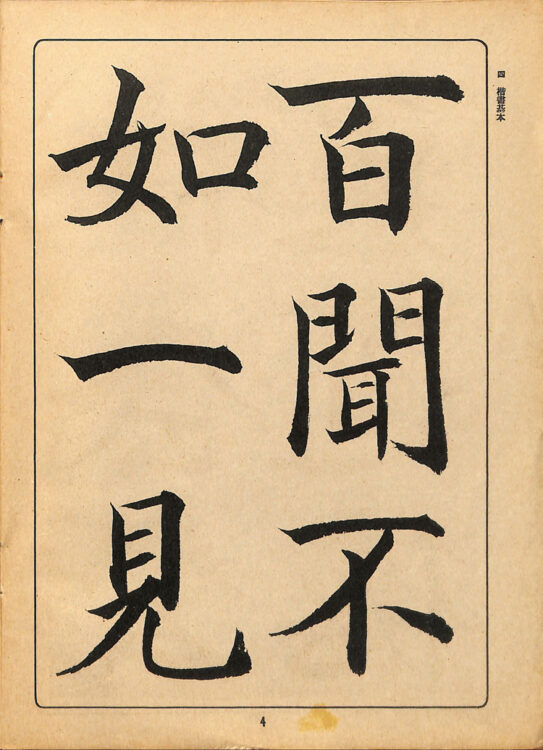 四 楷書基本
百聞不
如一見
4